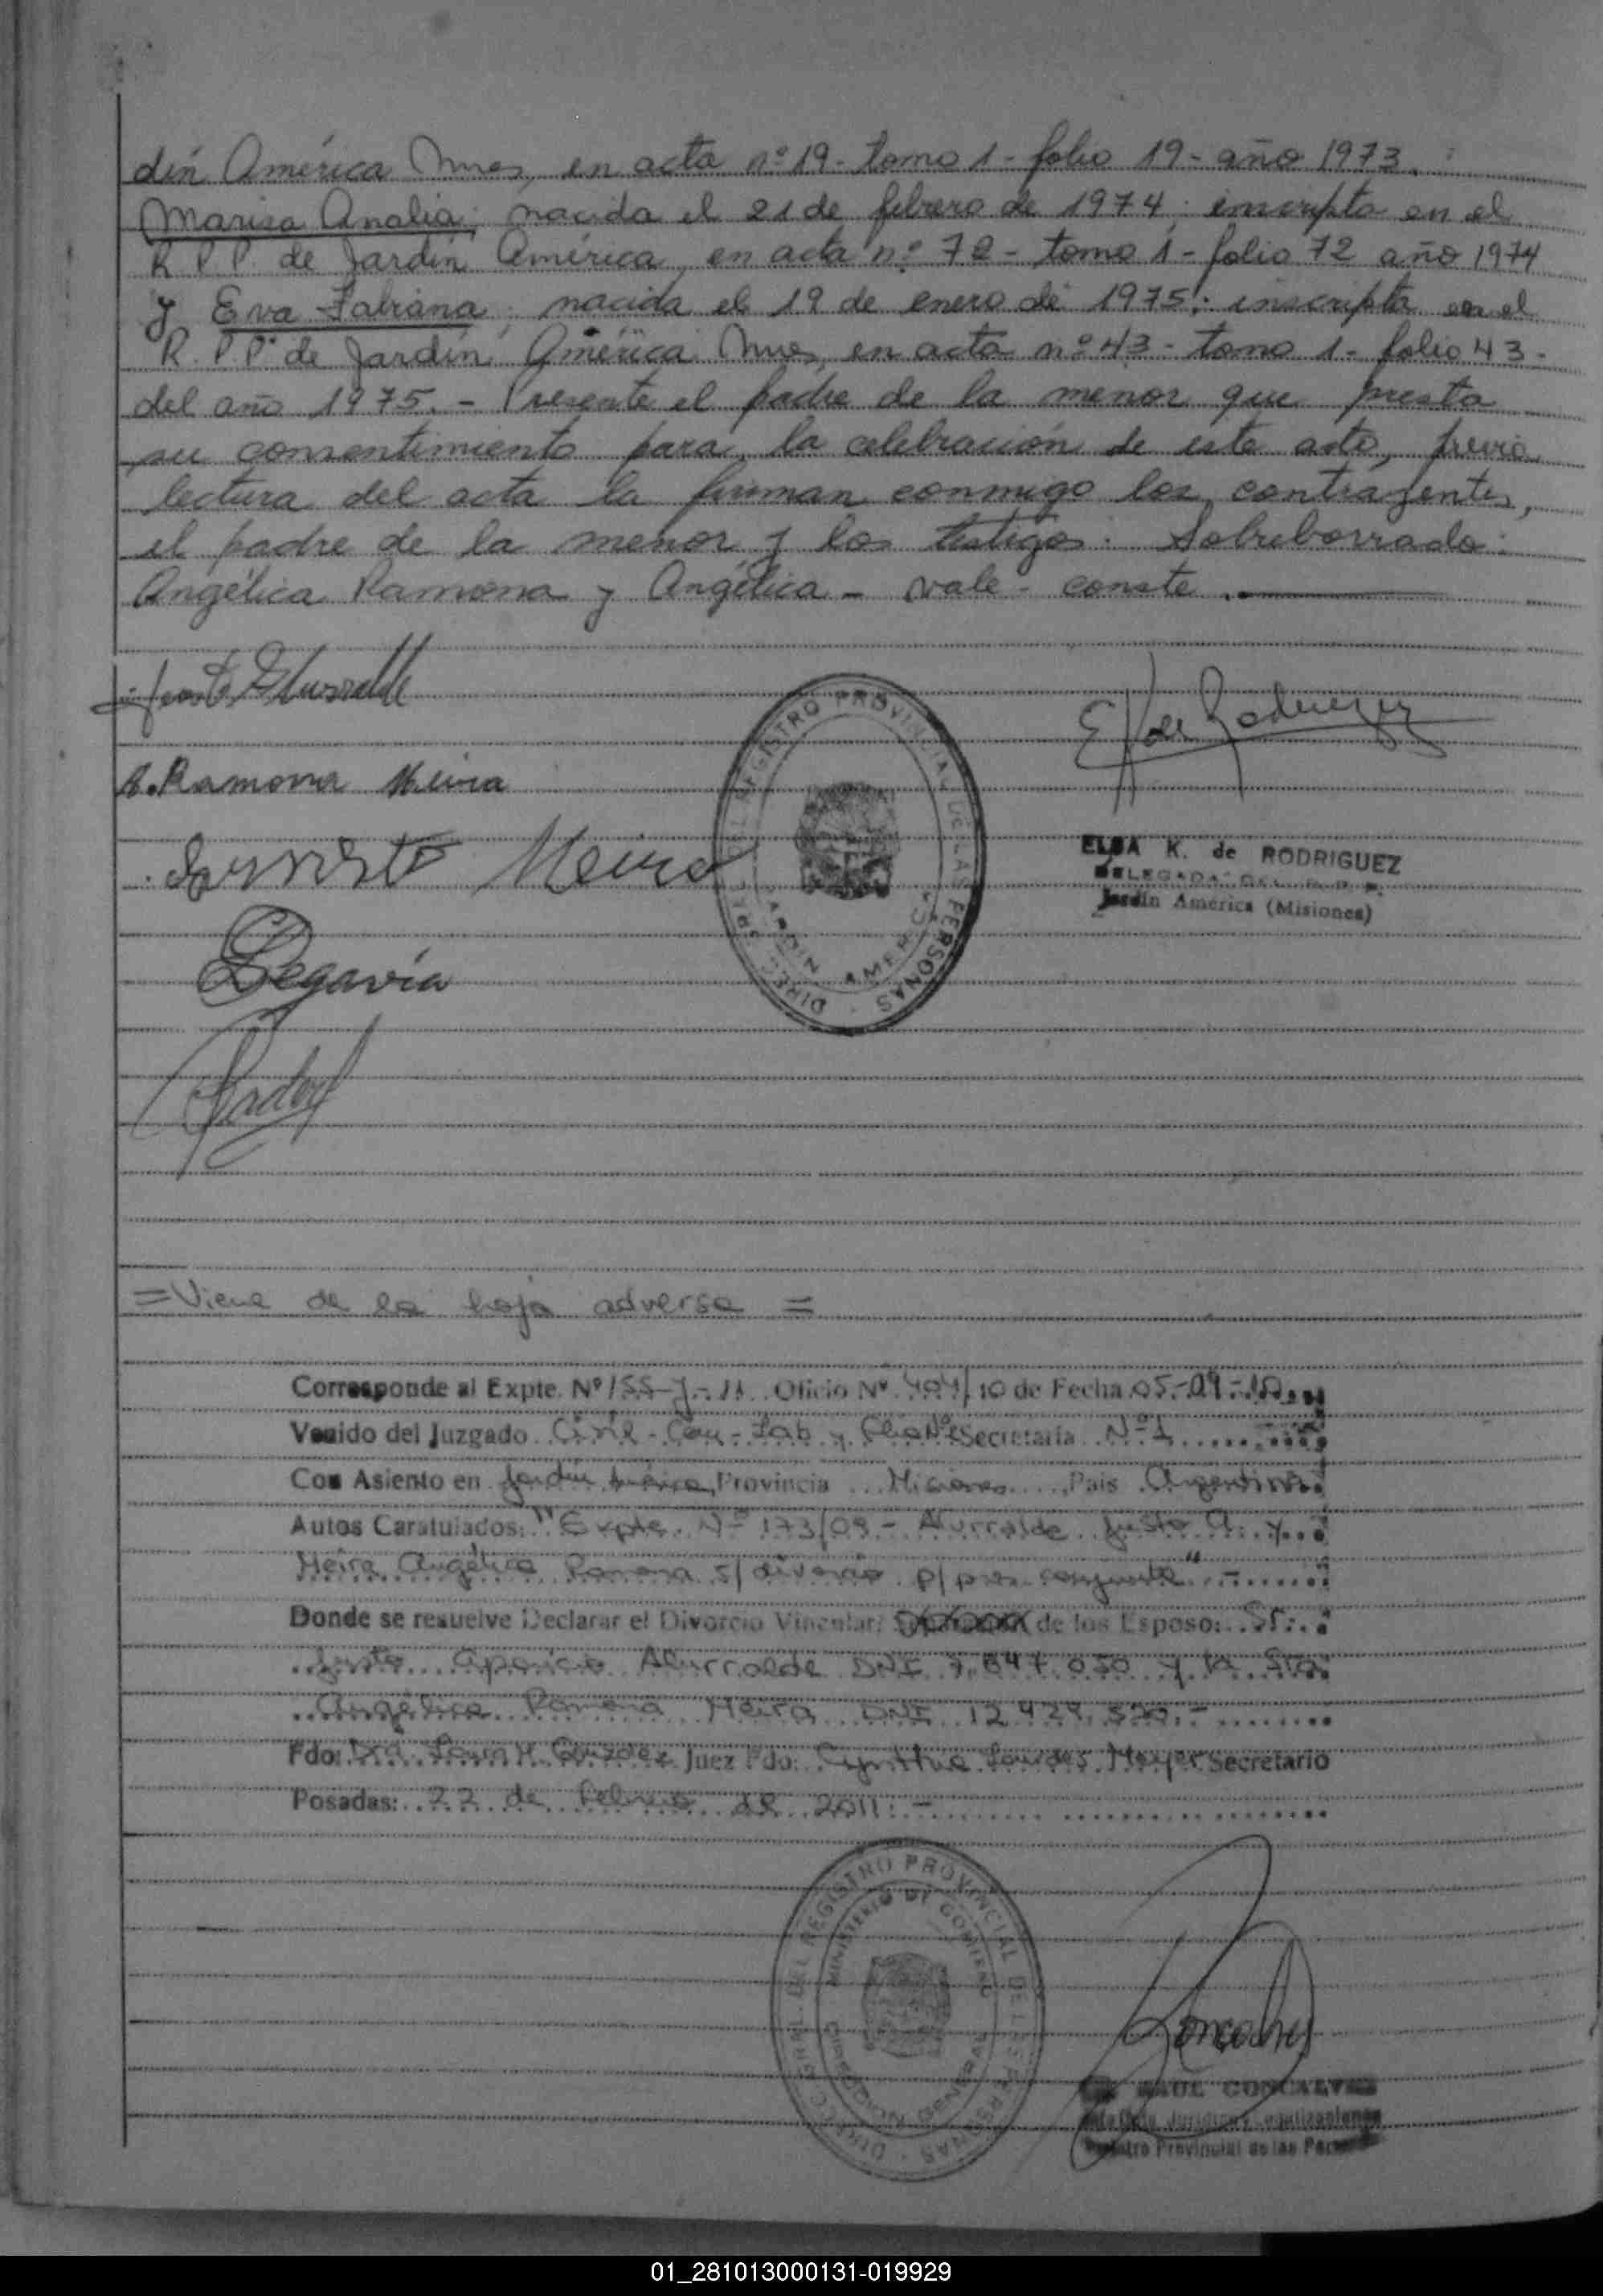 dín América Mnes, en acta nº 19 - tomo 1 - folio 19 - año 1973.
Marisa Analia; nacida el 21 de febrero de 1974; inscripta en el
R P.P. de Jardín América, en acta nº 72 - tomo 1 - folio 72 año 1974
y Eva Fabiana; nacida el 19 de enero de 1975; inscripta en el
R. P.P. de Jardín América Mnes, en acta nº 43 - tomo 1 - folio 43 -
del año 1975. - Presente el padre de la menor que presta
su consentimiento para la celebración de este acto, previa
lectura del acta la firman conmigo los contrayentes,
el padre de la menor y los testigos. Sobreborrado:
Angélica Ramona y Angélica - vale - conste.
A. Ramona Meira
Ernesto Meira
Segovia
E K de Rodriguez
ELSA K. de RODRIGUEZ
DELEGADA DEL R. P. P.
Jardín América (Misiones)
DIREC. GRAL. DEL REGISTRO PROVINCIAL DE LAS PERSONAS
JARDIN AMERICA
= Viene de la hoja adversa =
Corresponde al Expte. Nº 155-J-11 Oficio Nº 404/10 de Fecha 05-09-10
Venido del Juzgado Civil - Com - Lab y Flia Nº Secretaría Nº 1
Con Asiento en Jardín América, Provincia Misiones, País Argentina
Autos Caratulados: "Expte. Nº 173/09 - Alurralde Justo A. y
Meira Angélica Ramona s/ divorcio p/ pres. conjunta" -
Donde se resuelve Declarar el Divorcio Vincular: de los Esposo: Sr.
Justo Aparicio Alurralde DNI 7.847.050 y la Sra.
Angélica Ramona Meira DNI 12.424.520. -
Fdo: Dra. Juez Fdo: Cynthia Lourdes Meyer Secretario
Posadas: 22 de Febrero de 2011. -
DIRECC. GRAL. DEL REGISTRO PROVINCIAL DE LAS PERSONAS
MINISTERIO DE GOBIERNO
RAUL GONCALVES
Jurídica y Legalizaciones
Registro Provincial de las Personas
01_281013000131-019929